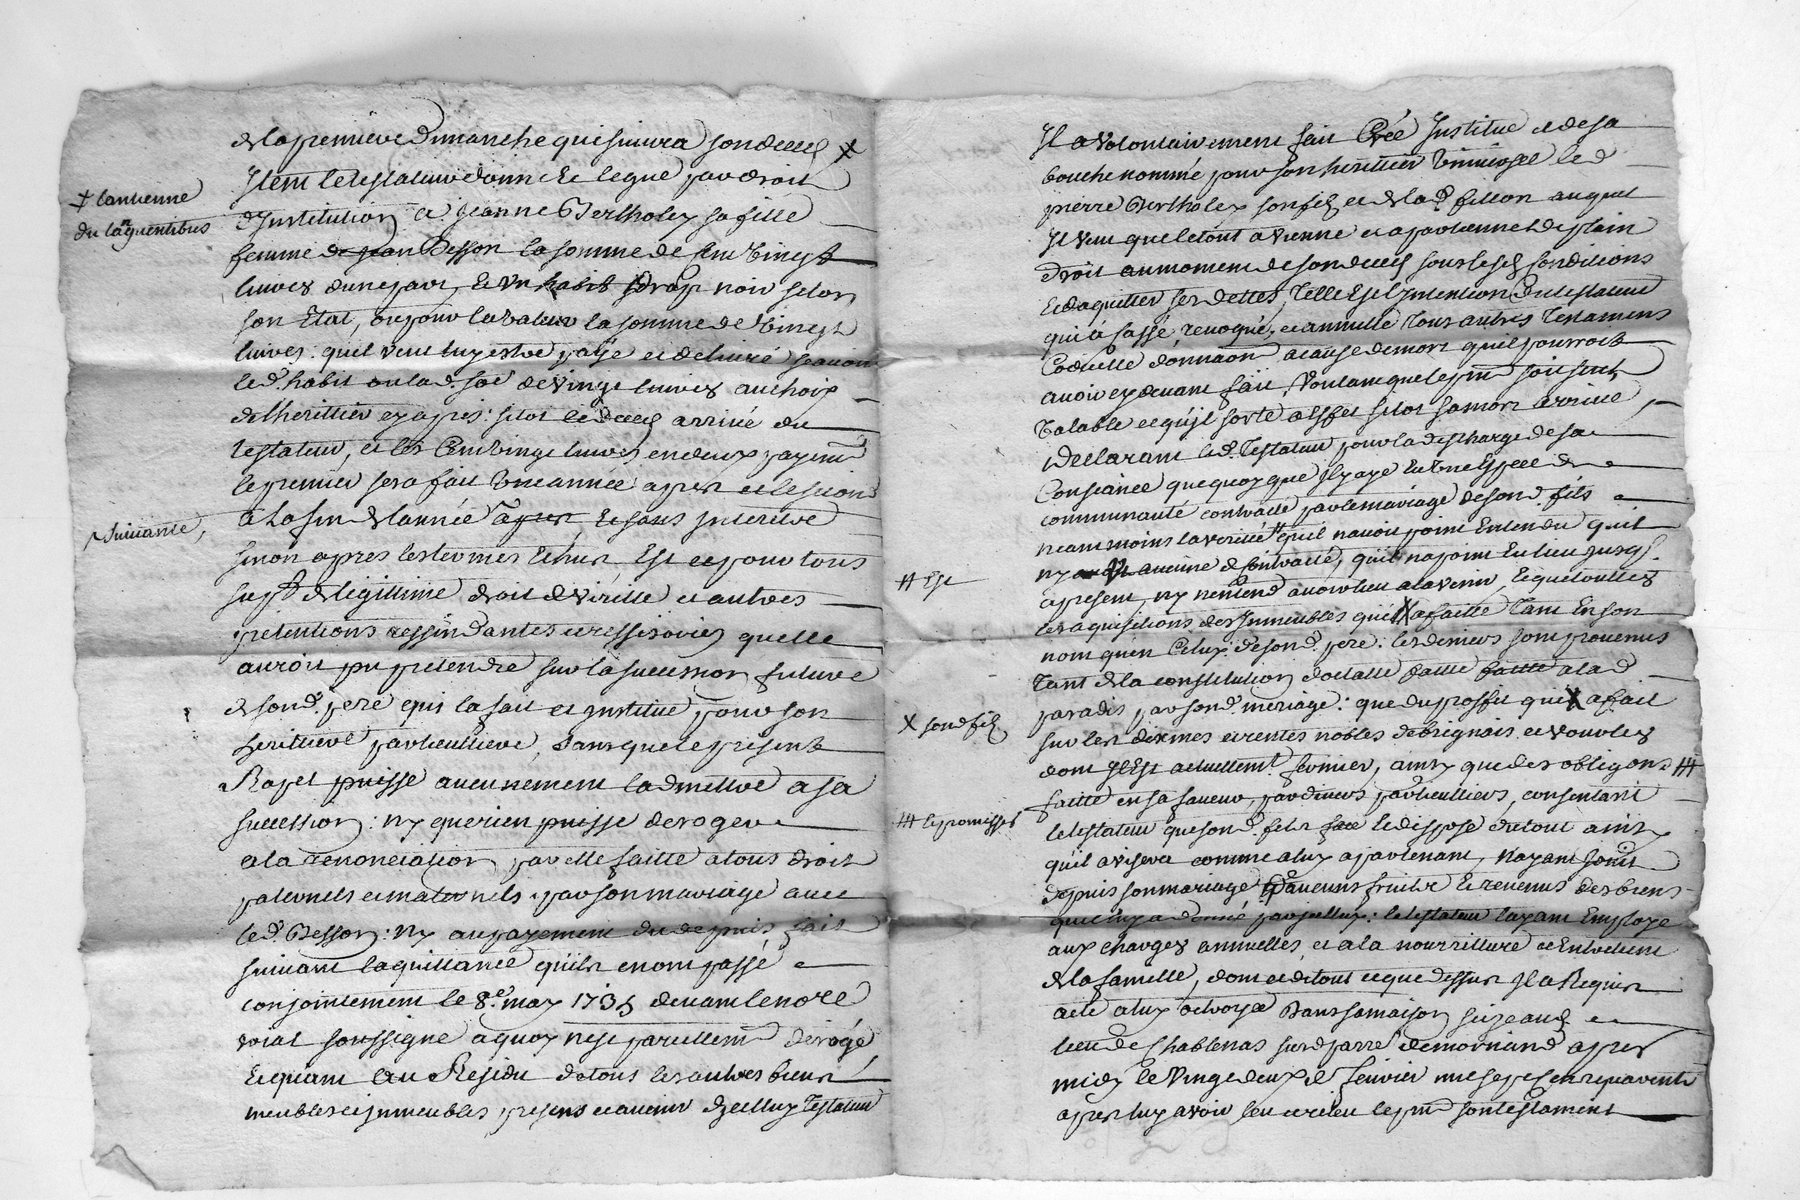 de la premiere dimanche qui suivra son deces X
Item le testateur donne et legue par droit
d'Institution a Jeanne Bertholey sa fille
femme de Jean Besson la somme de cent vingt
livres dune part, et un habit drap noir selon
son Etat, ou pour la valeur la somme de vingt
livres: quil veut luy estre payé et delivré scavoir
led. habit ou lad. soe de vingt livres au choix
de lherittier cy apres: sitot le deces arrivé du
testateur, et les cent vingt livres en deux payemt
le premier sera fait une année apres et le second
a la fin de lannée apres et sans interitre
sinon apres les termes Echus, Est ce pour tous
supt de legittime droit de virille et autres
pretentions rescindantes et ressisoires quelle
auroit pu pretendre sur la succession future
de sond. pere qui la fait et institue pour son
herittiere particulliere, sans que le present
Rapel puisse aucunement ladmettre a sa
succession: ny que rien puisse deroger
a la renonciation par elle faitte a tous droit
paternels et maternels par son mariage avec
led. Besson: ny au payement du depuis fait
suivant la quittance quils en ont passé
conjointement le 8e may 1735 devant le nore
roial soussigne a quoy nest pareillemt derogé
Et quant au Residu de tous les autres biens
meubles et immeubles, presens et avenir dicelluy testateur
X lantienne
du languentibus
suivante,
Il a volontairement fait Créé Institué et de sa
bouche nommé pour son heritier universel led.
pierre Bertholey son fils et de lad. fillion auquel
Il veut que le tout avienne et apartienne de plain
droit au moment de son deces sous lesd. conditions
Et daquitter ses dettes, Telle Est lintention du testateur
qui a cassé, revoqué, et annullé tous autres testamens
Codicille donnaon a cause de mort quil pourroit
avoir cy devant fait, voulant que le pnt soit seul
valable et quil sorte a Effet sitot sa mort arrivée,
declarant led. Testateur pour la descharge de sa
Consiance que quoy que Il y aye Eu une Espece de
communauté contracté par le mariage de sond. fils
neantmoins la verité # quil navoit point Entendu quil
ny aucune de contracté, quil na point Eu lieu jusqs.
a present, ny nentend avoir lieu a lavenir, Et que toutes
les aquisitions des Immeubles quil X a faitte tant En son
nom quen Celuy de sond. pere: les deniers sont provenus
tant de la constitution dotalle faitte a lad.
paradis par sond. mariage: que du proffit quil X a fait
sur les dixmes et rentes nobles de brignais et vourles
dont Il Est actuellemt. fermier, ainsy que des obligons #
faitte en sa faveur, par divers particulliers, consentant
le testateur que sond. fils le dispose du tout ainsy
quil avisera comme a luy apartenant, Nayant Jouit
depuis son mariage daucuns fruits Et revenus des biens
quil luy a donné par icelluy: le testateur layant Employé
aux charges annuelles, et a la nourriture et Entretient
de la famille, dont et du tout ce que dessus Il a Requis
acte a luy octroyé Dans sa maison size aud.
lieu de Chablenas susd. parre. de mornand apres
midy le vingt deux de fevrier mil sept cent quarente
apres luy avoir leu et releu le pnt son testament
# Est
X sond. fils
# et promesses